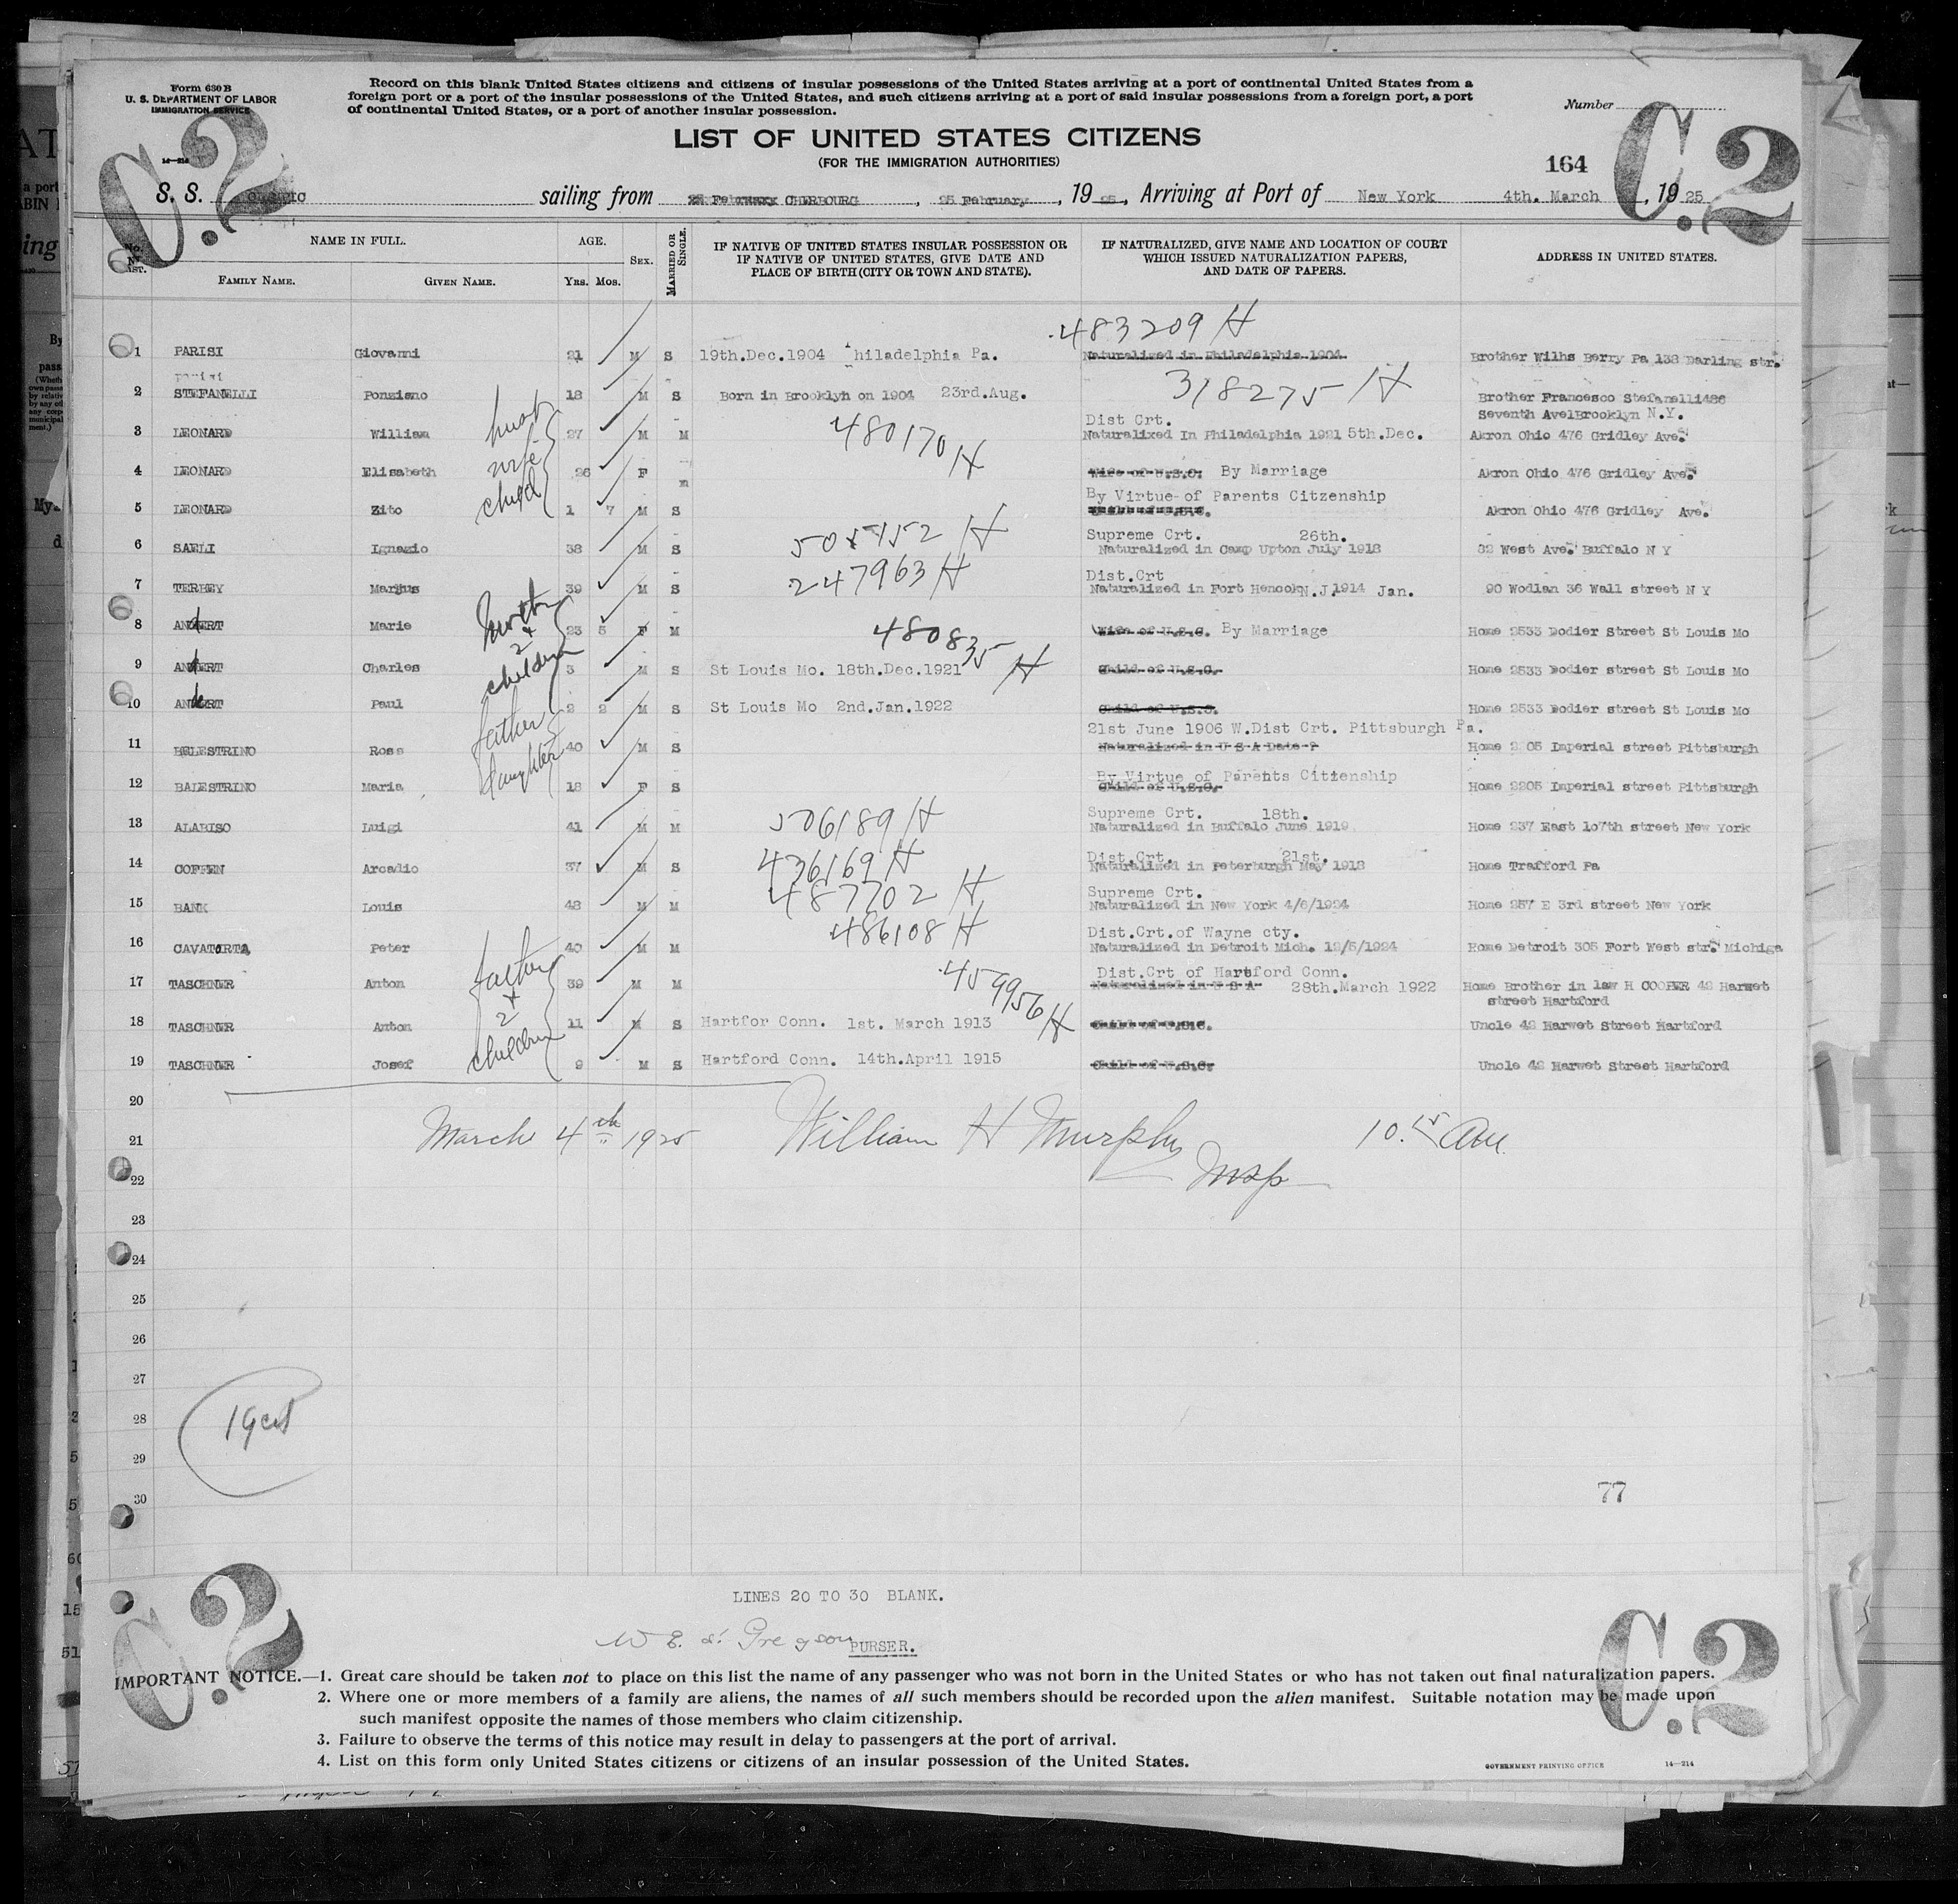 Form 630 B
U. S. DEPARTMENT OF LABOR
IMMIGRATION SERVICE
14—214
Record on this blank United States citizens and citizens of insular possessions of the United States arriving at a port of continental United States from a
foreign port or a port of the insular possessions of the United States, and such citizens arriving at a port of said insular possessions from a foreign port, a port
of continental United States, or a port of another insular possession.
Number
C.2
C.2
LIST OF UNITED STATES CITIZENS
(FOR THE IMMIGRATION AUTHORITIES)
164
S. S. OLYMPIC sailing from CHERBOURG, 25 February, 1925, Arriving at Port of New York 4th. March, 1925
No. IN LIST.
NAME IN FULL.
FAMILY NAME.
GIVEN NAME.
AGE.
Yrs. Mos.
SEX.
MARRIED OR SINGLE.
IF NATIVE OF UNITED STATES INSULAR POSSESSION OR
IF NATIVE OF UNITED STATES, GIVE DATE AND
PLACE OF BIRTH (CITY OR TOWN AND STATE).
IF NATURALIZED, GIVE NAME AND LOCATION OF COURT
WHICH ISSUED NATURALIZATION PAPERS,
AND DATE OF PAPERS.
ADDRESS IN UNITED STATES.
483209 H
1 PARISI Giovanni 21 M S 19th.Dec.1904 Philadelphia Pa. Naturalized in Philadelphia 1904 Brother Wilhs Berry Pa 138 Darling str.
parisi
318275 H
2 STEFANELLI Ponziano 18 M S Born in Brooklyn on 1904 23rd.Aug. Brother Francesco Stefanelli486
Seventh AvelBrooklyn N.Y.
Dist Crt.
3 LEONARD William husb 27 M M 480170 H Naturalized In Philadelphia 1921 5th.Dec. Akron Ohio 476 Gridley Ave.
4 LEONARD Elisabeth wife 26 F m Wife of U.S.C. By Marriage Akron Ohio 476 Gridley Ave.
By Virtue of Parents Citzenship
5 LEONARD Zito child 1 7 M S Child of U.S.C. Akron Ohio 476 Gridley Ave.
Supreme Crt. 26th.
6 SAELI Ignazio 38 M S 505452 H Naturalized in Camp Upton July 1918 32 West Ave. Buffalo N Y
Dist.Crt
7 Marjus 39 M S 247963 H Naturalized in Fort Hencok N.J. 1914 Jan. 90 Wodlan 36 Wall street N Y
8 Marie 23 5 F M 480835 H Wife of U.S.C. By Marriage Home 2533 Dodier Street St Louis Mo
2
children
9 Charles 3 M S St Louis Mo. 18th.Dec.1921 Child of U.S.C. Home 2533 Dodier street St Louis Mo
10 Paul 2 2 M S St Louis Mo 2nd.Jan.1922 Child of U.S.C. Home 2533 Dodier street St Louis Mo
21st June 1906 W.Dist Crt. Pittsburgh Pa.
11 BELESTRINO Ross father 40 M S Naturalized in U S A Date ? Home 2205 Imperial street Pittsburgh
By Virtue of Parents Citizenship
12 BALESTRINO Maria daughter 18 F S Child of U.S.C. Home 2205 Imperial street Pittsburgh
Supreme Crt. 18th.
13 ALABISO Luigi 41 M M 506189 H Naturalized in Buffalo June 1919 Home 237 East 107th street New York
Dist.Crt. 21st.
14 COFFEN Arcadio 37 M S 436169 H Naturalized in Peterburgh May 1918 Home Trafford Pa
Supreme Crt.
15 BANK Louis 48 M M 487702 H Naturalized in New York 4/6/1924 Home 257 E 3rd street New York
Dist.Crt.of Wayne cty.
16 CAVATORTA Peter 40 M M 486108 H Naturalized in Detroit Mich. 12/5/1924 Home Detroit 305 Fort West str. Michiga
Dist.Crt of Hartford Conn.
17 TASCHNER Anton father 39 M M 459956 H Naturalized in U S A 28th.March 1922 Home Brother in law H COOPER 42 Harwet
street Hartford
+
2
18 TASCHNER Anton 11 M S Hartfor Conn. 1st. March 1913 Child of U.S.C. Uncle 42 Harwet Street Hartford
children
19 TASCHNER Josef 9 M S Hartford Conn. 14th.April 1915 Child of U.S.C. Uncle 42 Harwet Street Hartford
20
21 March 4th 1925 William H Murphy 10.15 AM
Insp
22
23
24
25
26
27
28 19 cit
29
30
77
LINES 20 TO 30 BLANK.
PURSER.
C.2
C.2
IMPORTANT NOTICE.—1. Great care should be taken not to place on this list the name of any passenger who was not born in the United States or who has not taken out final naturalization papers.
2. Where one or more members of a family are aliens, the names of all such members should be recorded upon the alien manifest. Suitable notation may be made upon
such manifest opposite the names of those members who claim citizenship.
3. Failure to observe the terms of this notice may result in delay to passengers at the port of arrival.
4. List on this form only United States citizens or citizens of an insular possession of the United States.
GOVERNMENT PRINTING OFFICE 14—214